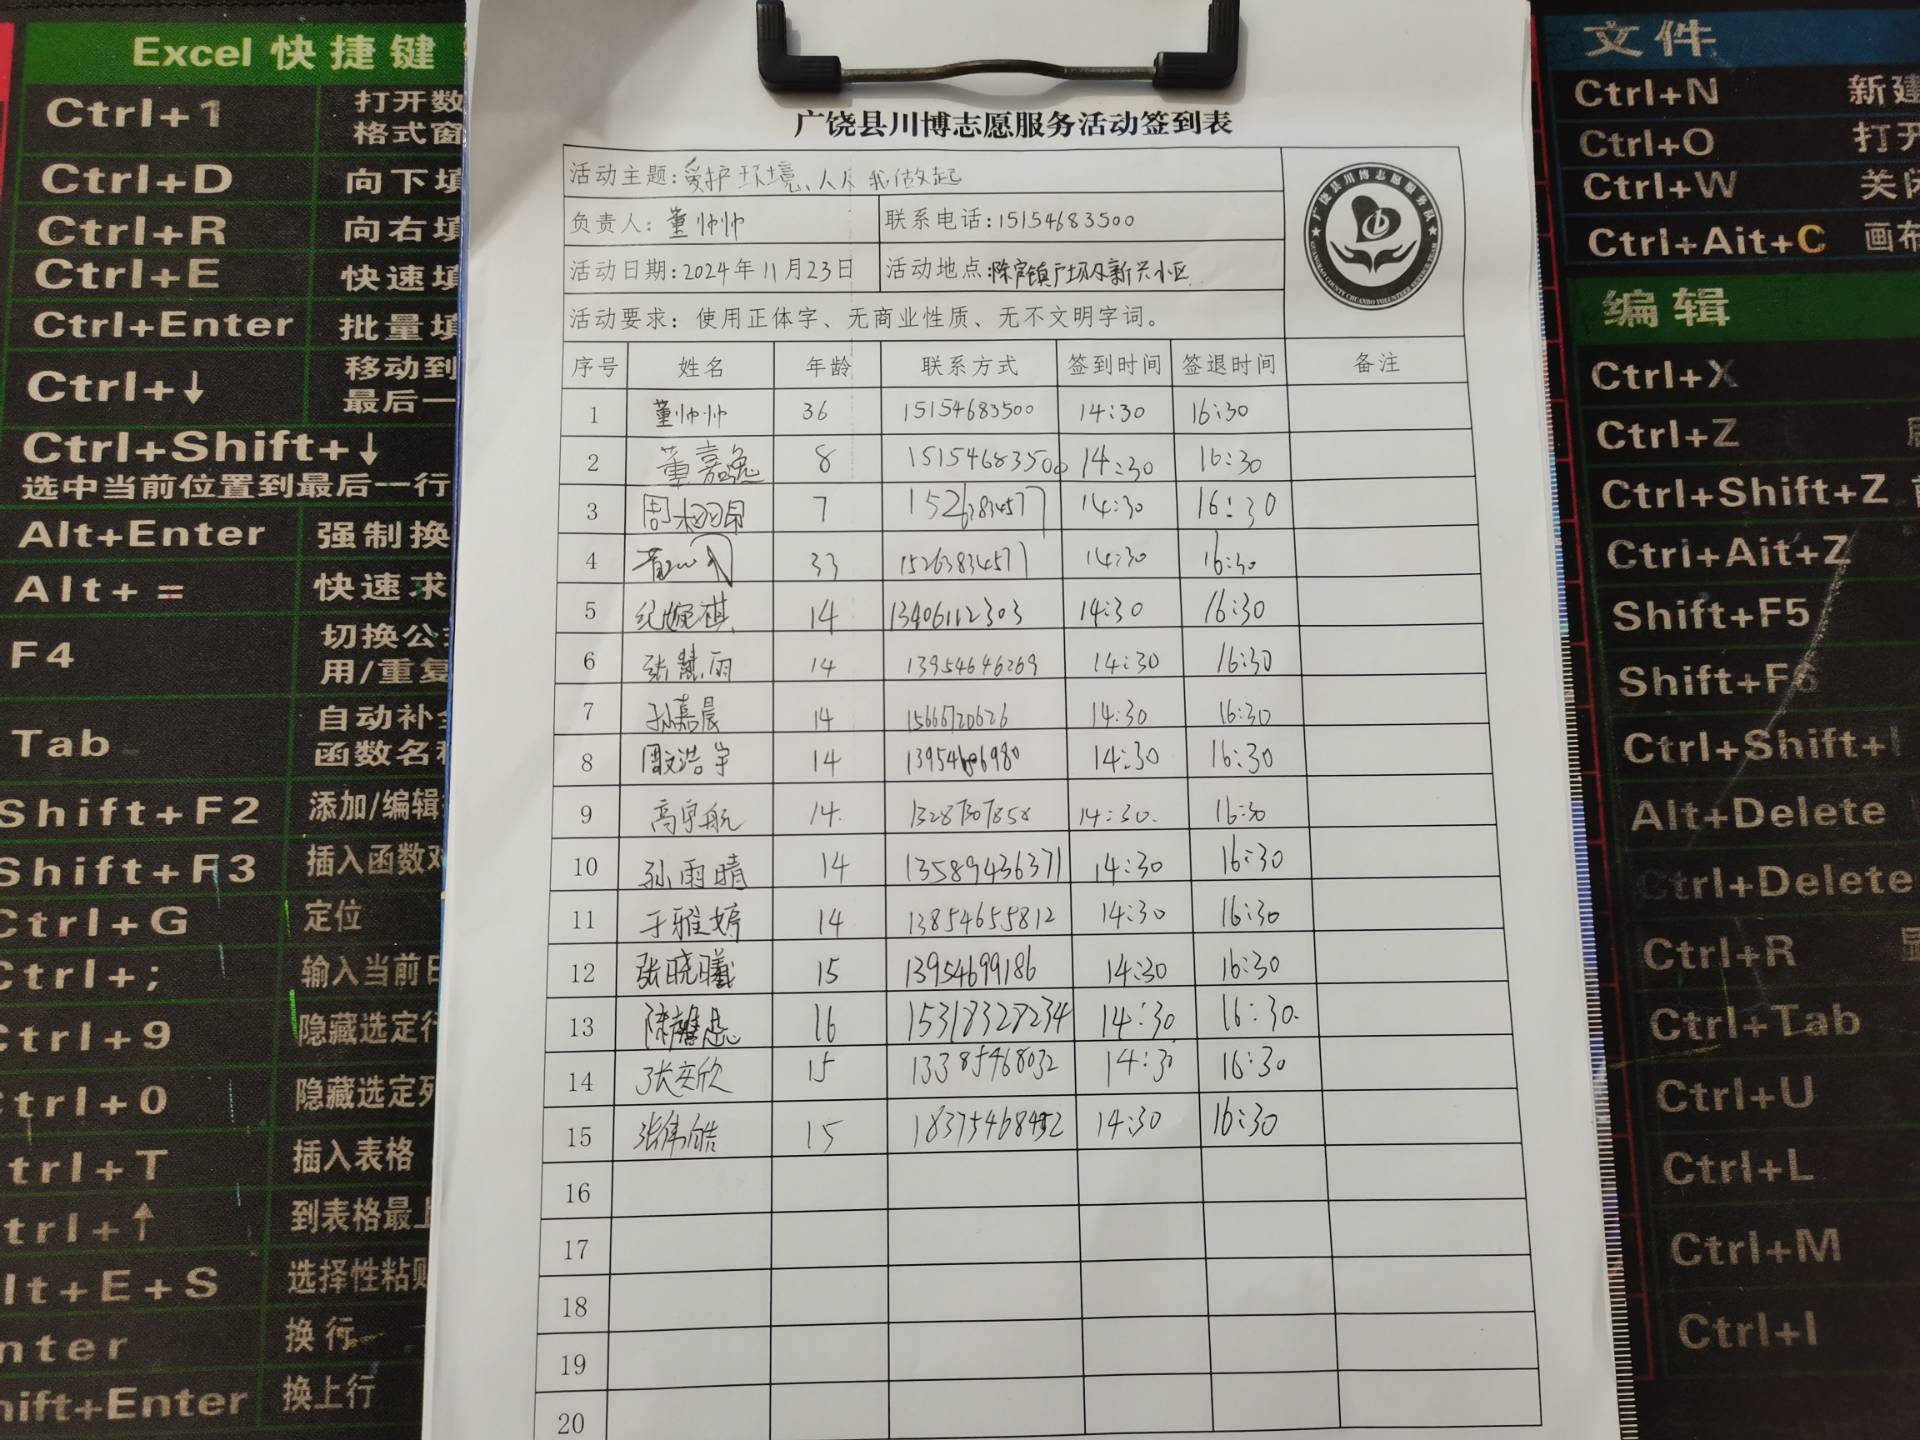 Excel 快捷键
Ctrl+1 打开数
格式窗
Ctrl+D 向下填
Ctrl+R 向右填
Ctrl+E 快速填
Ctrl+Enter 批量填
Ctrl+↓ 移动到
最后一
Ctrl+Shift+↓
选中当前位置到最后一行
Alt+Enter 强制换
Alt+ = 快速求
F4 切换公式
用/重复
Tab 自动补全
函数名称
Shift+F2 添加/编辑
Shift+F3 插入函数对
Ctrl+G 定位
Ctrl+; 输入当前日
Ctrl+9 隐藏选定行
Ctrl+0 隐藏选定列
trl+T 插入表格
trl+↑ 到表格最上
lt+E+S 选择性粘贴
nter 换行
hift+Enter 换上行
广饶县川博志愿服务活动签到表
活动主题:爱护环境、人人 我做起
负责人: 董帅帅 联系电话:15154683500
活动日期:2024年11月23日 活动地点:陈官镇广场及新兴小区
活动要求: 使用正体字、无商业性质、无不文明字词。
广饶县川博志愿服务队
GUANGRAO COUNTY CHUANBO VOLUNTEER SERVICE TEAM
序号 姓名 年龄 联系方式 签到时间 签退时间 备注
1 董帅帅 36 15154683500 14:30 16:30
2 董嘉逸 8 15154683500 14:30 16:30
3 周 7 15263834577 14:30 16:30
4 33 15263834577 14:30 16:30
5 纪婉祺 14 13406112303 14:30 16:30
6 张慧雨 14 13954646269 14:30 16:30
7 孙嘉晨 14 15666720626 14:30 16:30
8 浩宇 14 16:30 14:30
9 高宇航 14. 13287307858 14:30. 16:30
10 孙雨晴 14 13589436371 14:30 16:30
11 于雅婷 14 13854655812 14:30 16:30
12 张晓曦 15 13954699186 14:30 16:30
13 陈 16 15318328234 14:30 16:30.
14 张安欣 15 13385468032 14:30 16:30
15 张伟皓 15 14:30 16:30
16
17
18
19
20
文件
Ctrl+N 新建
Ctrl+O 打开
Ctrl+W 关闭
Ctrl+Ait+C 画布
编辑
Ctrl+X
Ctrl+Z
Ctrl+Shift+Z
Ctrl+Ait+Z
Shift+F5
Shift+F6
Ctrl+Shift+I
Alt+Delete
Ctrl+Delete
Ctrl+R
Ctrl+Tab
Ctrl+U
Ctrl+L
Ctrl+M
Ctrl+I